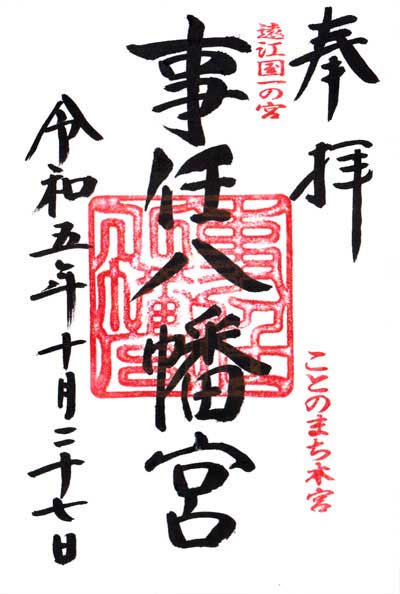 奉拝
遠江国一の宮
ことのまち本宮
事任八幡宮
令和五年十月二十七日